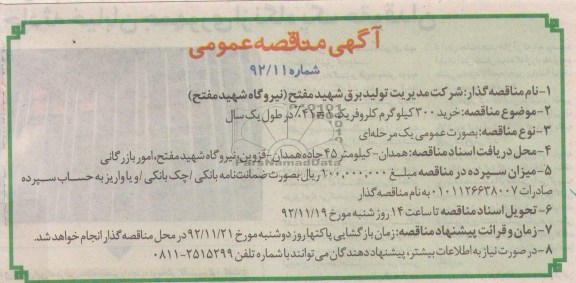 آگهی مناقصه عمومی
شماره ۹۲/۱۱
۱-نام مناقصه گذار: شرکت مدیریت تولید برق شهید مفتح (نیروگاه شهید مفتح)
۲-موضوع مناقصه: خرید ۳۰۰ کیلوگرم کلروفریک ۴۱٪ در طول یک سال
۳-نوع مناقصه: بصورت عمومی یک مرحله ای
۴-محل دریافت اسناد مناقصه: همدان-کیلومتر ۴۵ جاده همدان-قزوین، نیروگاه شهید مفتح، امور بازرگانی
۵-میزان سپرده در مناقصه مبلغ ۱۰۰,۰۰۰,۰۰۰ ریال بصورت ضمانت نامه بانکی /چک بانکی /و یا واریز به حساب سپرده
صادرات ۰۱۰۱۱۲۶۶۳۸۰۰۷ به نام مناقصه گذار
۶-تحویل اسناد مناقصه تا ساعت ۱۴ روز شنبه مورخ ۹۲/۱۱/۱۹
۷-زمان و قرائت پیشنهاد مناقصه: زمان بازگشایی پاکتها روز دوشنبه مورخ ۹۲/۱۱/۲۱ در محل مناقصه گذار انجام خواهد شد.
۸-در صورت نیاز به اطلاعات بیشتر، پیشنهاد دهندگان می توانند با شماره تلفن ۲۵۱۵۲۹۹-۰۸۱۱